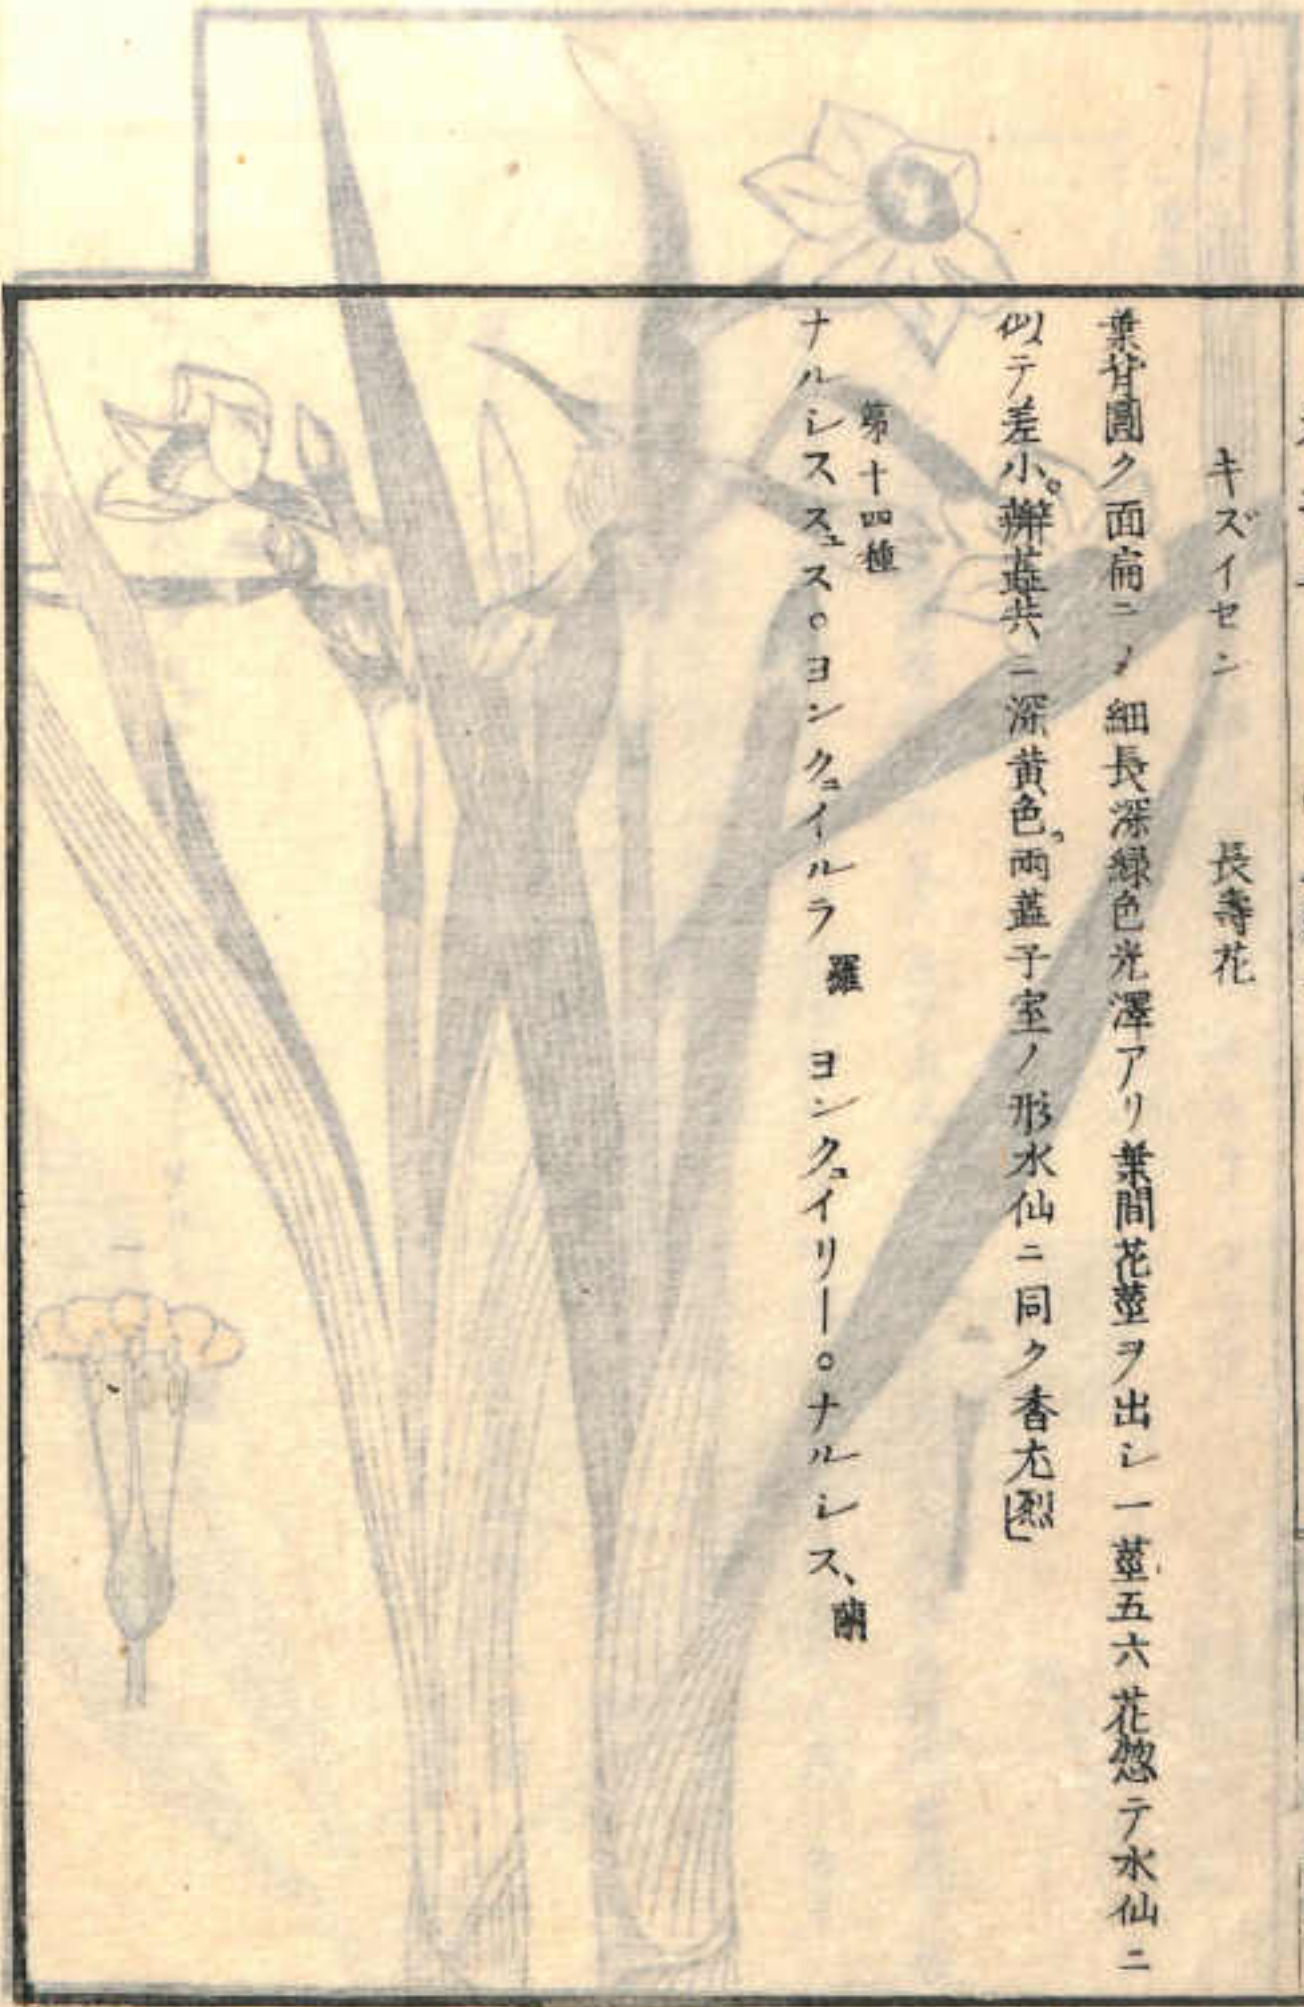 キズイセン　長壽花
葉背圓ク面扁ニ〆細長深緑色光澤アリ葉間花莖ヲ出シ一莖五六花惣テ水仙ニ
似テ差小。瓣蓝共ニ深黄色。両蕋子室ノ形水仙ニ同ク香尤烈」
第十四種
ナルシススュス。ヨンクュイルラ　羅　ヨンクュイリー。ナルシス、蘭